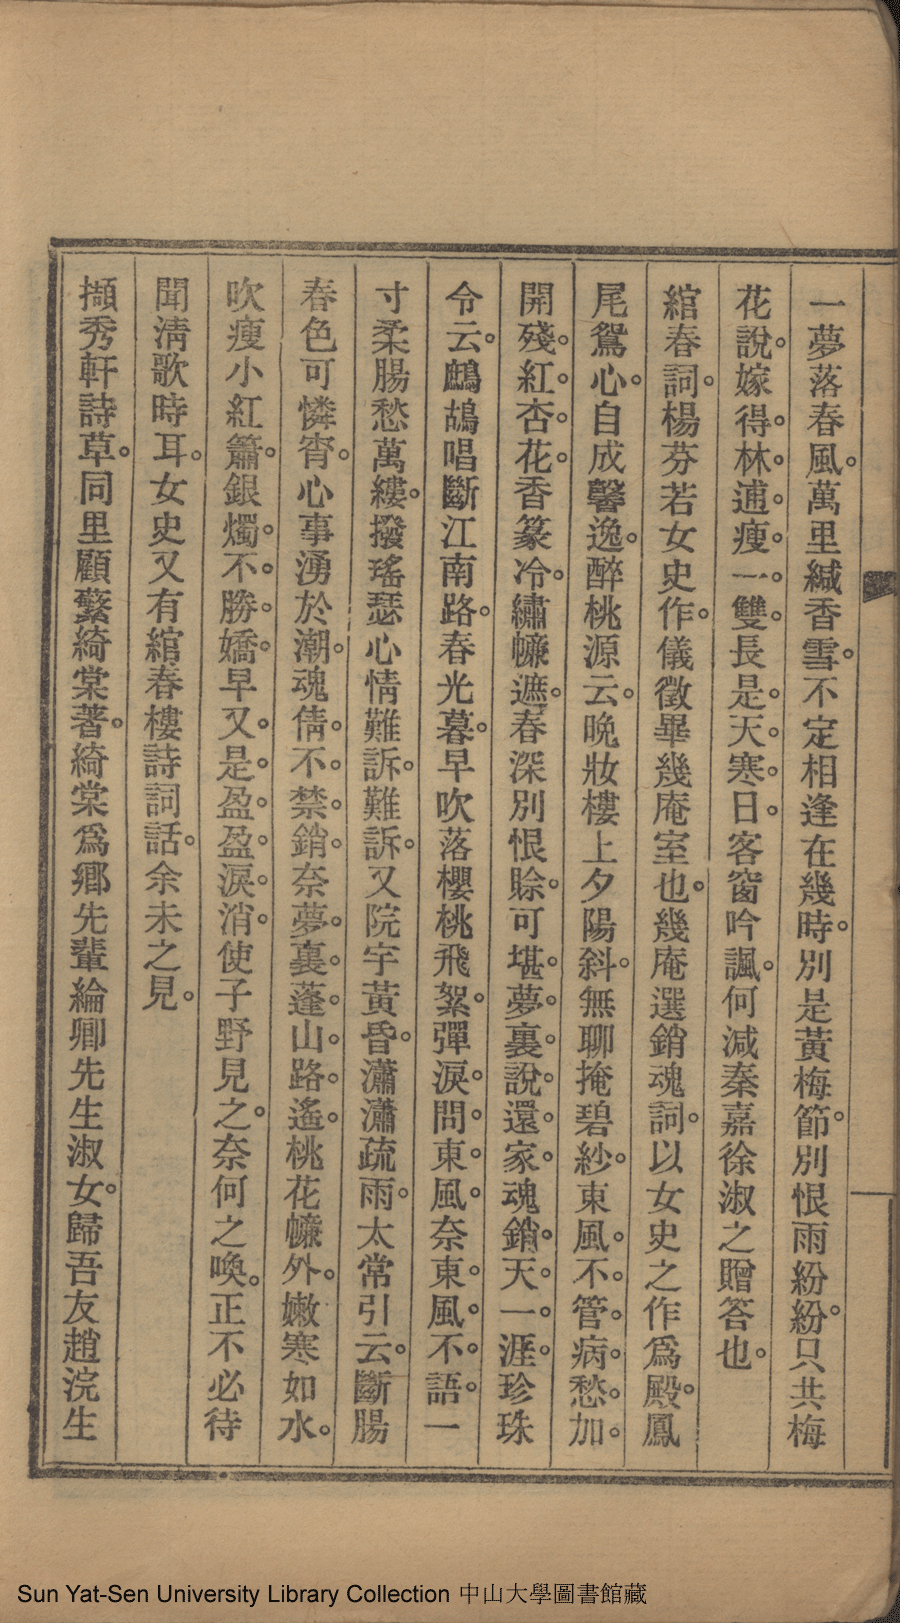 一夢落春風。萬里緘香雪。不定相逢在幾時。別是黃梅節。別恨雨紛紛。只共梅
花說。嫁得。林。逋。瘦。一。雙。長是。天。寒。日。客窗吟諷。何減秦嘉徐淑之贈答也。
綰春詞。楊芬若女史作。儀徵畢幾庵室也。幾庵選銷魂詞。以女史之作爲殿。鳳
尾鴛心。自成馨逸。醉桃源云。晚妝樓上夕陽斜。無聊掩碧紗。東風。不。管。病。愁。加。
開殘。紅。杏。花。香篆冷。繡幰遮。春深別恨賒。可堪。夢。裏。說。還。家。魂銷。天。一。涯。珍珠
令云。鷓鴣唱斷江南路。春光暮。早吹落櫻桃飛絮。彈淚。問。東。風。奈東。風。不。語。一
寸柔腸愁萬縷。撥瑤瑟心情難訴。難訴。又院宇黃昏。瀟瀟疏雨。太常引云。斷腸
春色可憐宵。心事湧於潮。魂倩。不。禁。銷。奈夢。裏。蓬。山。路。遙。桃花幰外。嫩寒如水。
吹瘦小紅簫。銀燭。不。勝。嬌。早又。是。盈。盈。淚。消。使子野見之。奈何之喚。正不必待
聞淸歌時耳。女史又有綰春樓詩詞話。余未之見。
擷秀軒詩草。同里顧蘩綺棠著。綺棠爲鄉先輩綸卿先生淑女。歸吾友趙浣生
Sun Yat-Sen University Library Collection 中山大學圖書館藏